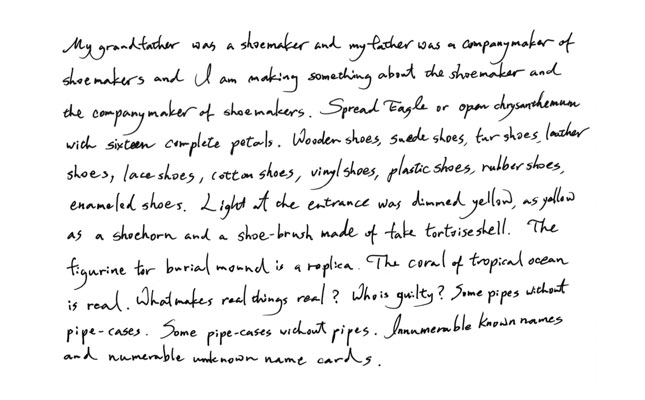 My grandfather was a shoemaker and my father was a companymaker of
shoemakers and I am making something about the shoemaker and
the companymaker of shoemakers. Spread Eagle or open chrysanthemum
with sixteen complete petals. Wooden shoes, suede shoes, fur shoes, leather
shoes, lace shoes, cotton shoes, vinyl shoes, plastic shoes, rubber shoes,
enameled shoes. Light at the entrance was dimmed yellow, as yellow
as a shoehorn and a shoe-brush made of fake tortoiseshell. The
figurine for burial mound is a replica. The coral of tropical ocean
is real. What makes real things real? Who is guilty? Some pipes without
pipe-cases. Some pipe-cases without pipes. Innumerable known names
and numerable unknown name cards.